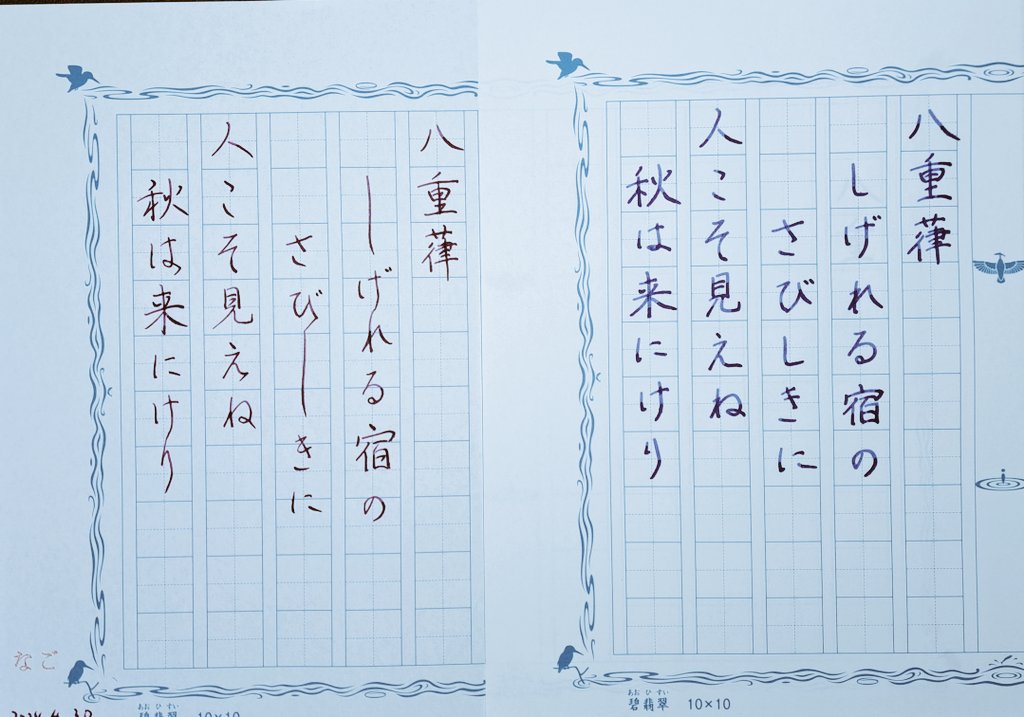 八重葎
しげれる宿の
さびしきに
人こそ見えね
秋は来にけり
なご
八重葎
しげれる宿の
さびしきに
人こそ見えね
秋は来にけり
あおひすい
碧翡翠 10×10
あおひすい
碧翡翠 10×10